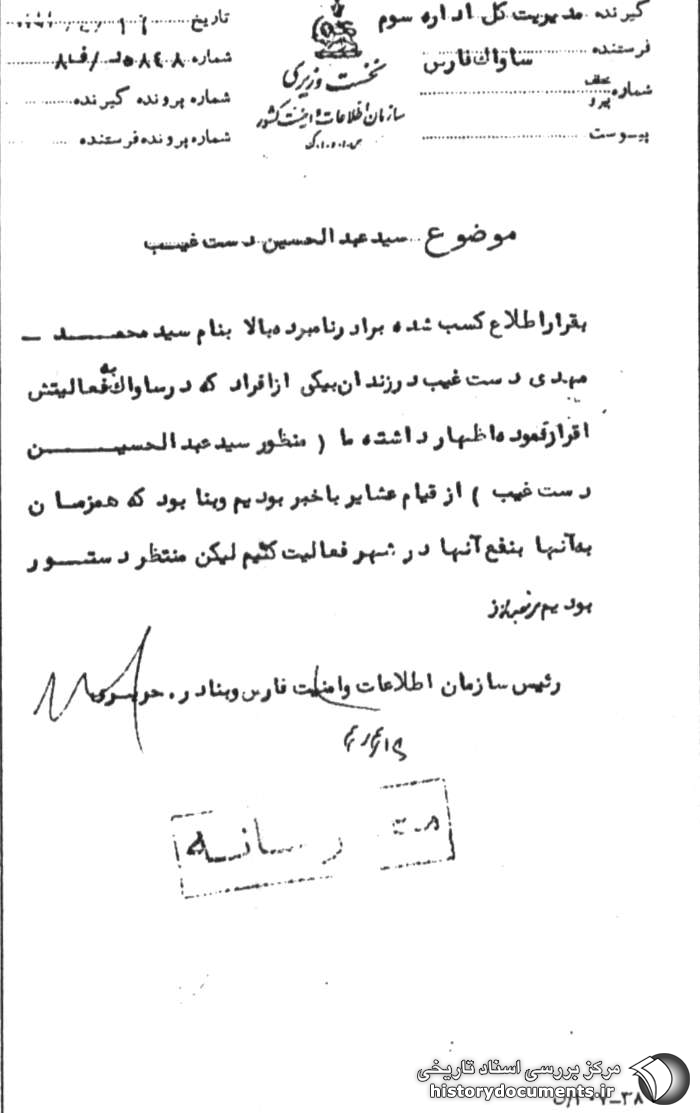 گیرنده مدیریت کل اداره سوم
فرستنده ساواک فارس
شماره
پیوست
نخست وزیری
سازمان اطلاعات و امنیت کشور
س.ا.و.ا.ک
تاریخ
شماره
شماره پرونده گیرنده
شماره پرونده فرستنده
موضوع سید عبدالحسین دست غیب
بقرار اطلاع کسب شده برادر نامبرده بالا بنام سید محمد ـ
مهدی دست غیب در زندان بیکی از افراد که در ساواک به فعالیتش
اقرار نموده اظهار داشته ما ( منظور سید عبدالحسین
دست غیب ) از قیام عشایر با خبر بودیم و بنا بود که همزمان
به آنها بنفع آنها در شهر فعالیت کنیم لیکن منتظر دستور
بودیم
رئیس سازمان اطلاعات وامنیت فارس وبنادر .
مرکز بررسی اسناد تاریخی
historydocuments.ir